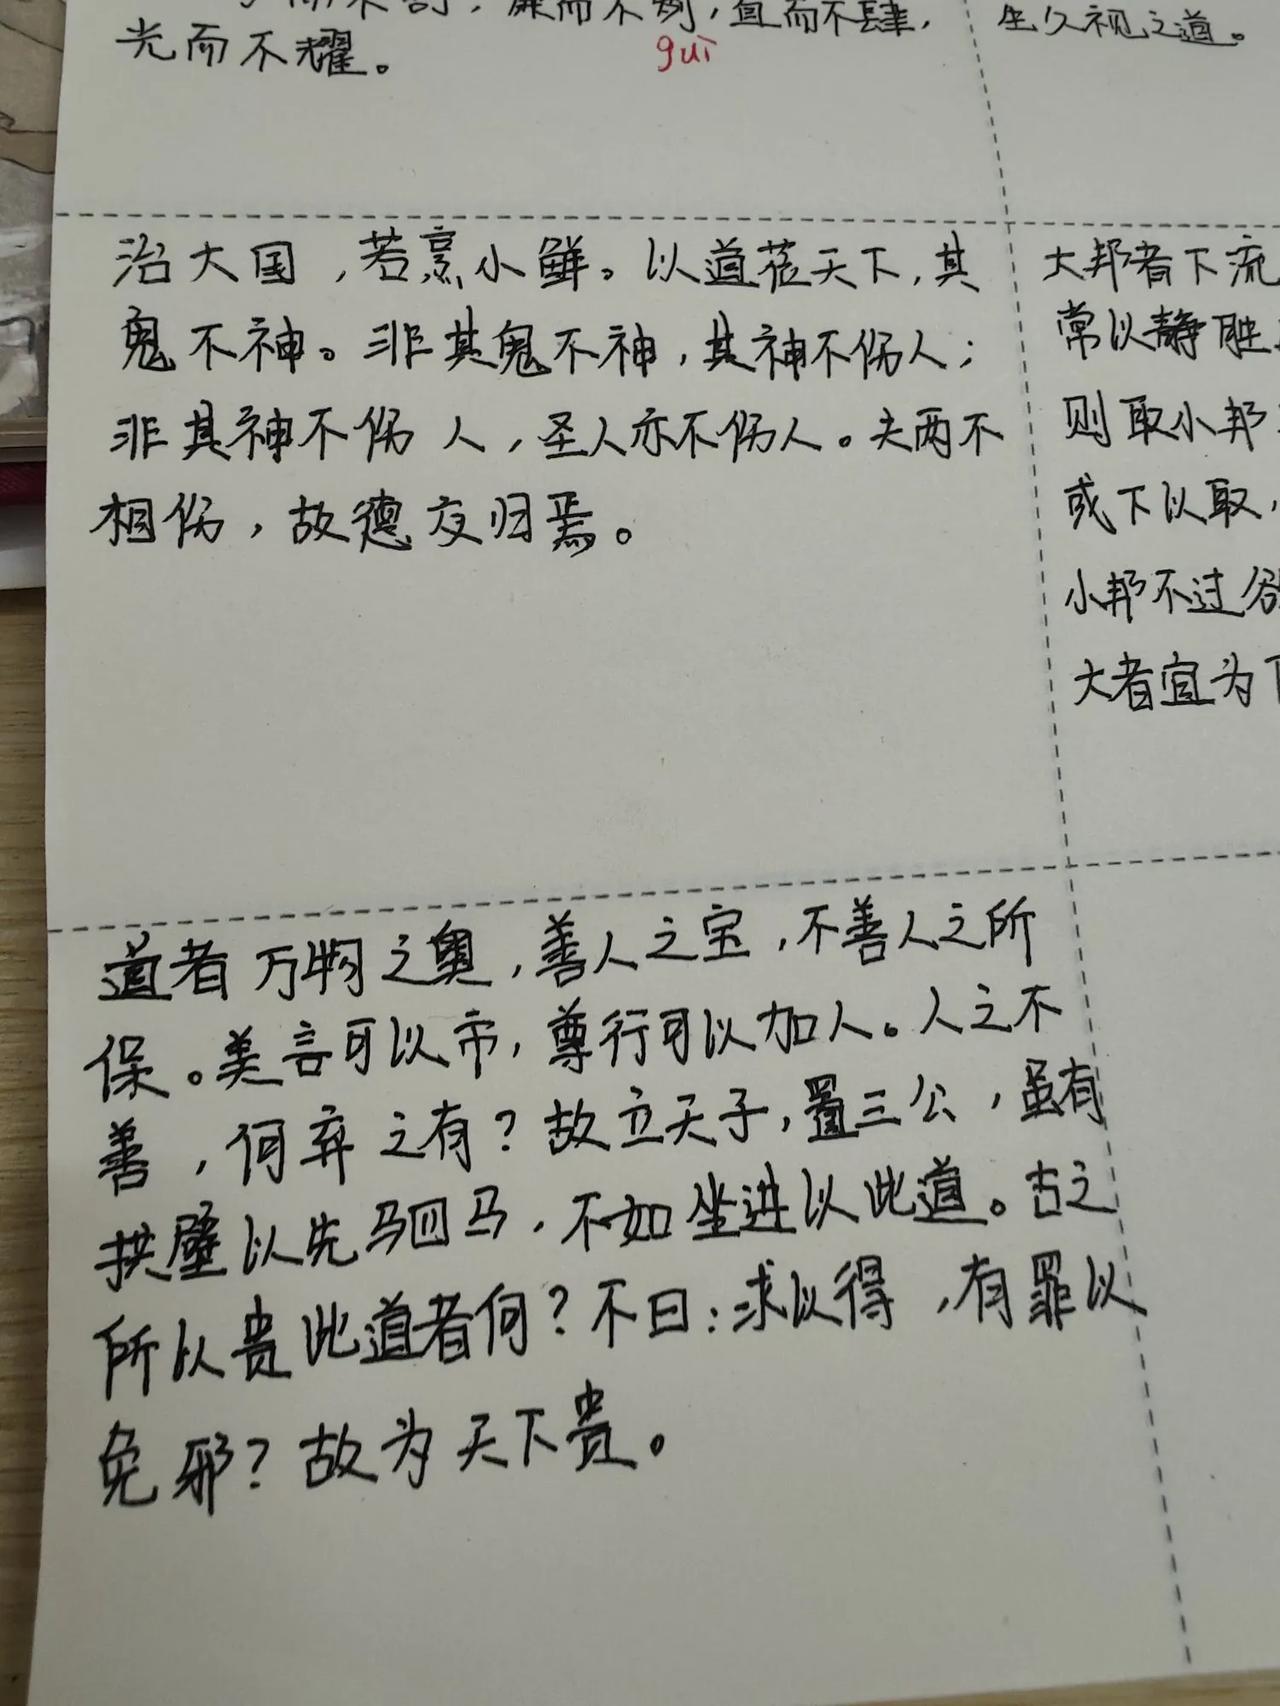 而不割，廉而不刿，直而不肆，
光而不耀。
guì
生久视之道。
治大国，若烹小鲜。以道莅天下，其
鬼不神。非其鬼不神，其神不伤人；
非其神不伤人，圣人亦不伤人。夫两不
相伤，故德交归焉。
大邦者下流
常以静胜
则取小邦
或下以取，
小邦不过欲
大者宜为下
道者万物之奥，善人之宝，不善人之所
保。美言可以市，尊行可以加人。人之不
善，何弃之有？故立天子，置三公，虽有
拱璧以先驷马，不如坐进以此道。古之
所以贵此道者何？不曰：求以得，有罪以
免邪？故为天下贵。